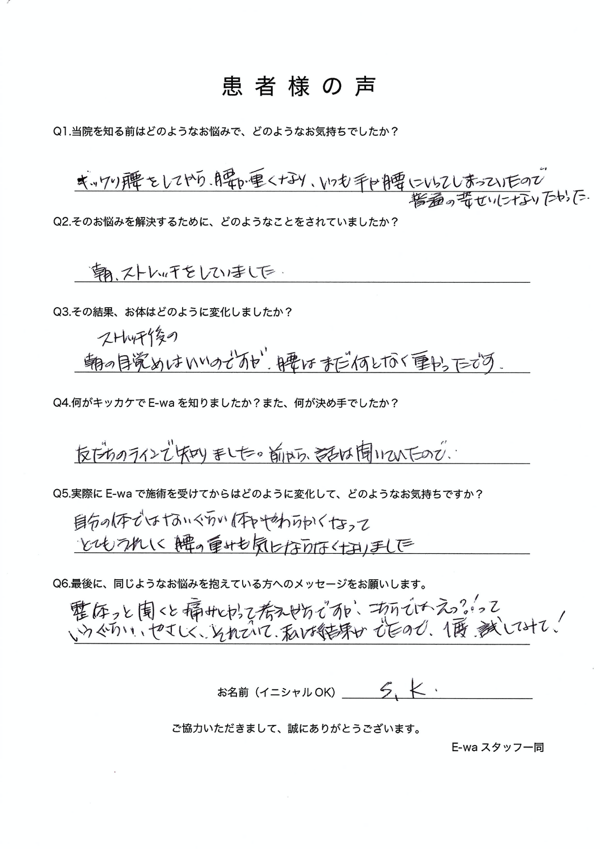 患者様の声
Q1.当院を知る前はどのようなお悩みで、どのようなお気持ちでしたか？
ギックリ腰をしてから、腰が重くなり、いつも手が腰にいってしまっていたので
普通の幸せいになりたかった
Q2.そのお悩みを解決するために、どのようなことをされていましたか？
朝、ストレッチをしていました
Q3.その結果、お体はどのように変化しましたか？
ストレッチ後の
朝の目覚めはいいのですが、腰はまだ何となく重かったです。
Q4.何がキッカケでE-waを知りましたか？また、何が決め手でしたか？
友だちのラインで知りました。前から、話は聞いていたので、
Q5.実際にE-waで施術を受けてからはどのように変化して、どのようなお気持ちですか？
自分の体ではないぐらい体がやわらかくなって
とてもうれしく腰の重みも気にならなくなりました
Q6.最後に、同じようなお悩みを抱えている方へのメッセージをお願いします。
整体っと聞くと痛みとかって考えがちですが、こちらではえっ?!って
いうぐらい、やさしく、それでいて、私は結果がでたので、1度、試してみて！
お名前（イニシャルOK） S,K.
ご協力いただきまして、誠にありがとうございます。
E-waスタッフ一同